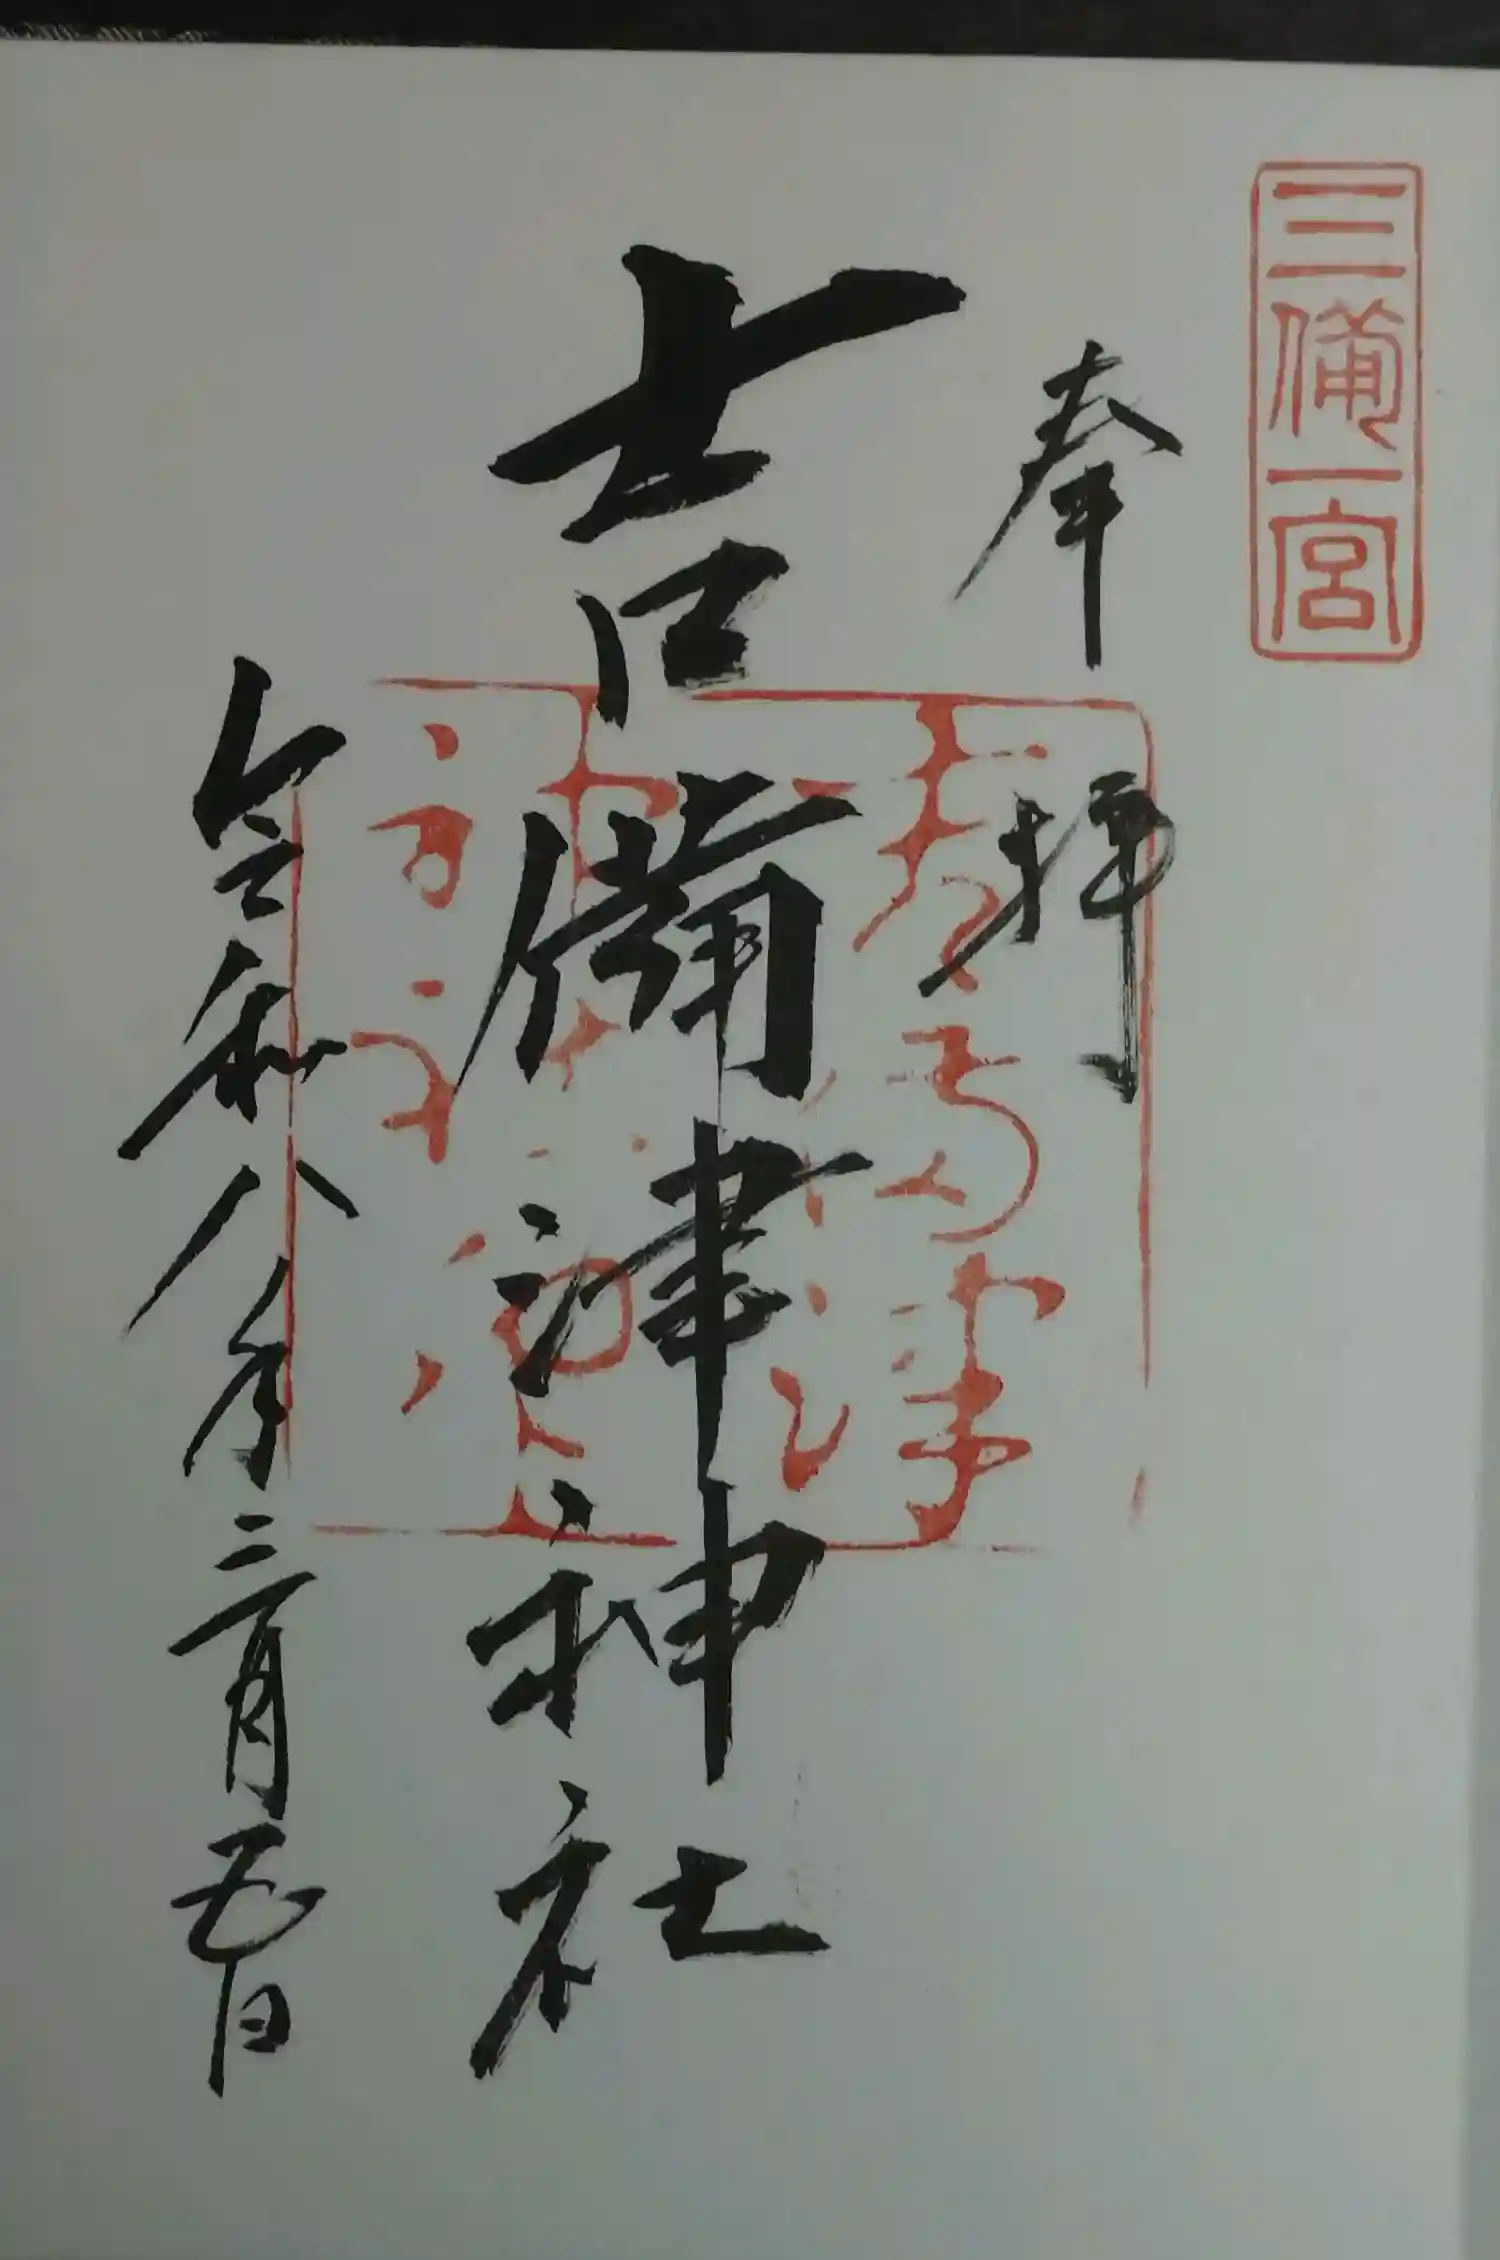 三備一宮
奉拝
吉備津神社
令和八年三月五日